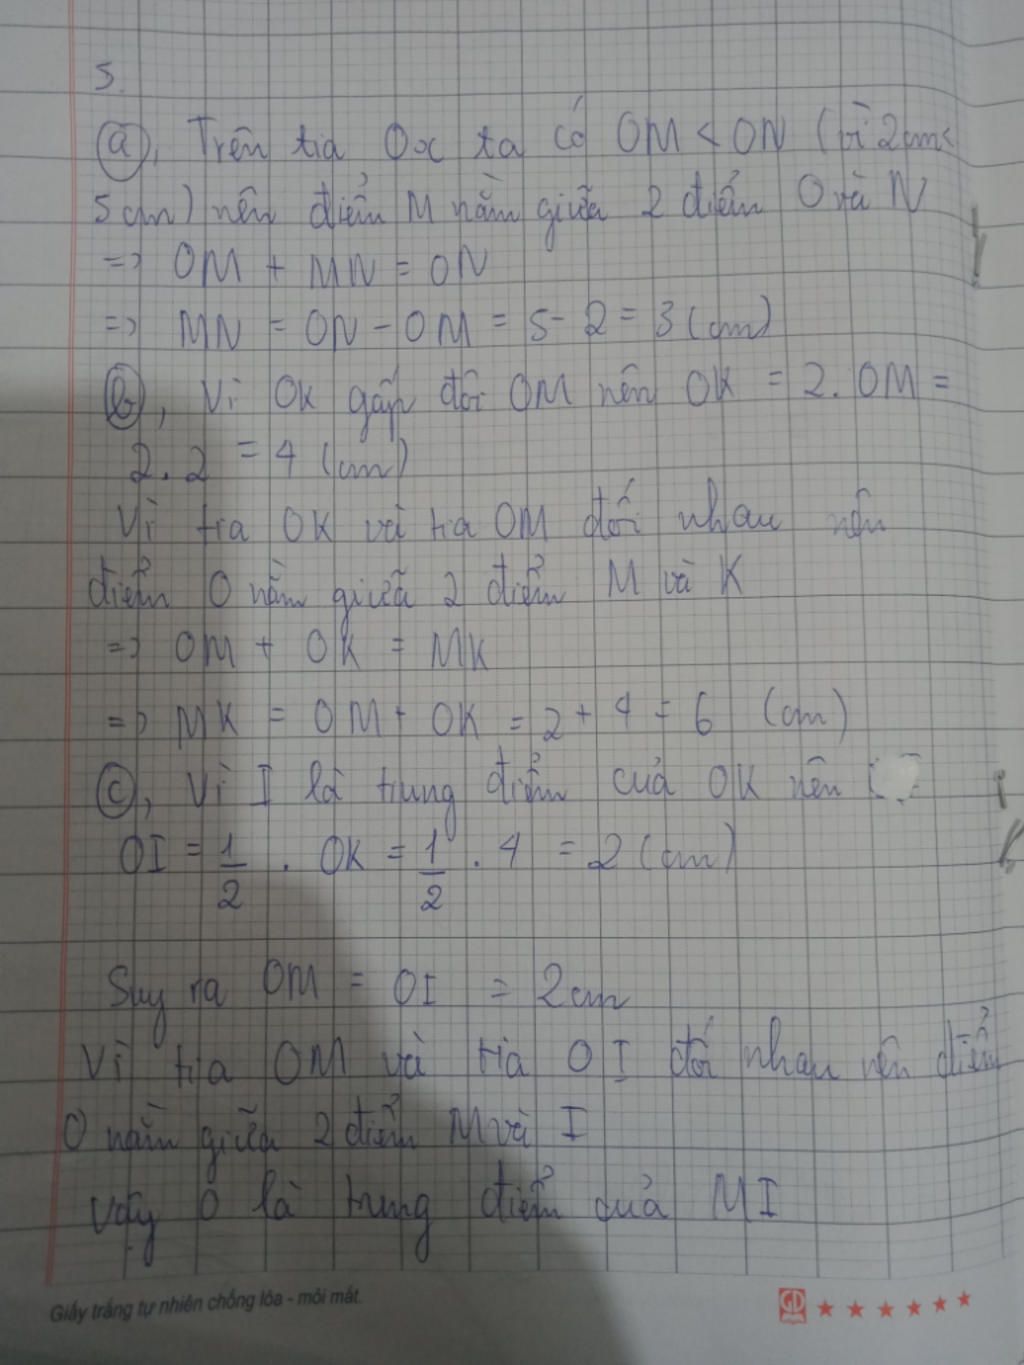 5.
a), Trên tia Ox ta có OM < ON (vì 2cm <
5cm) nên điểm M nằm giữa 2 điểm O và N
=> OM + MN = ON
=> MN = ON - OM = 5 - 2 = 3 (cm)
b), Vì OK gấp đôi OM nên OK = 2. OM =
2. 2 = 4 (cm)
Vì tia OK và tia OM đối nhau nên
điểm O nằm giữa 2 điểm M và K
=> OM + OK = MK
=> MK = OM + OK = 2 + 4 = 6 (cm)
c), Vì I là trung điểm của OK nên
OI = 1/2 . OK = 1/2 . 4 = 2 (cm)
Suy ra OM = OI = 2cm
Vì tia OM và tia OI đối nhau nên điểm
O nằm giữa 2 điểm M và I
Vậy O là trung điểm của MI
Giấy trắng tự nhiên chống lóa - mỏi mắt.
GD